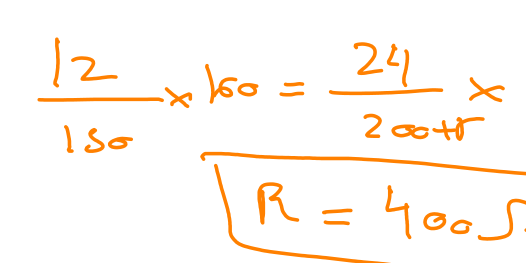 12/150 × 100 = 24/200+r ×
R = 400 Ω